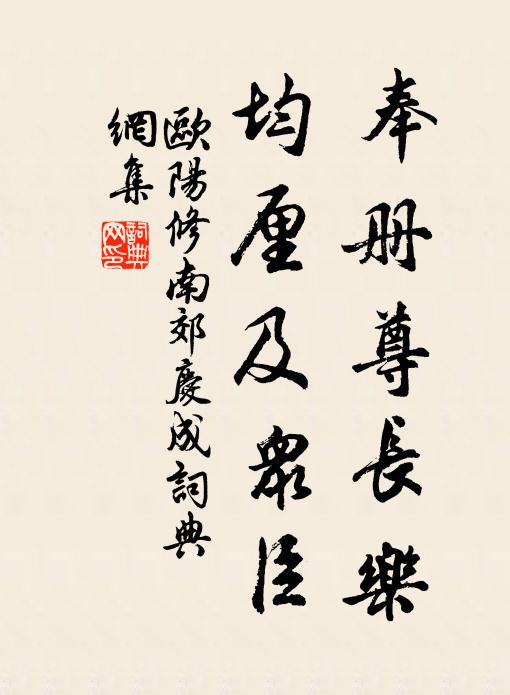 奉册尊長樂
均厘及衆臣
歐陽修南郊慶成詞典
網集
詞典
网印